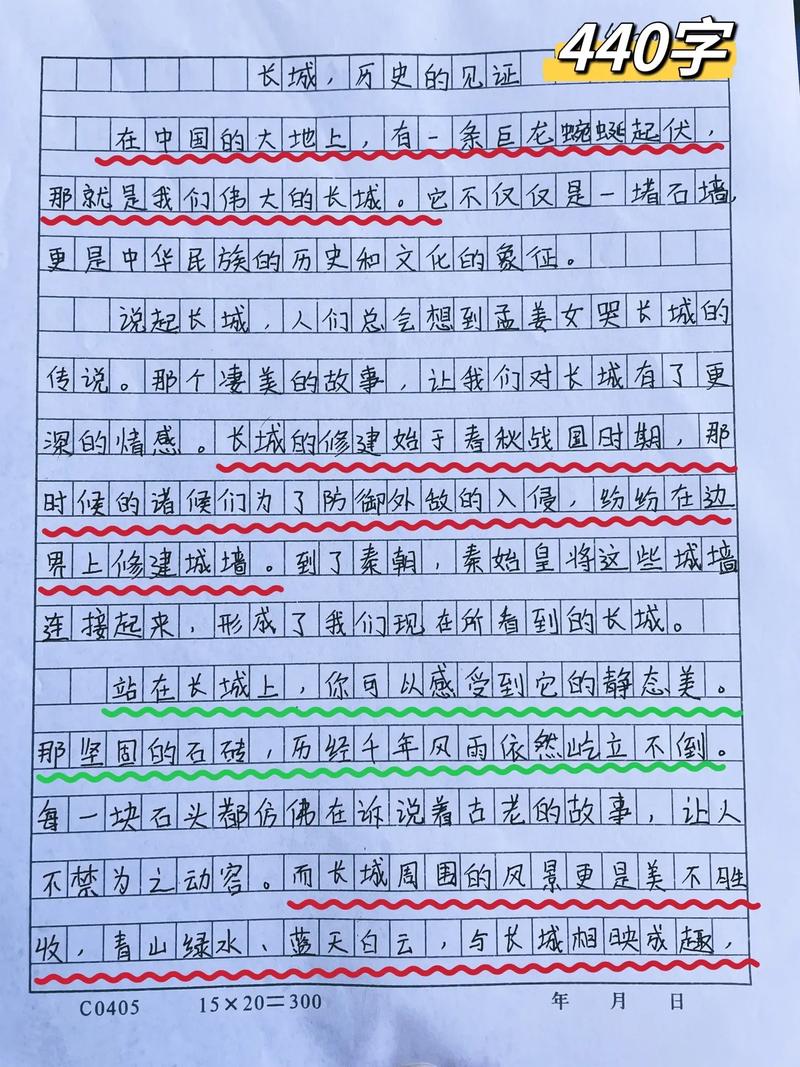 440字
长城，历史的见证
在中国的大地上，有一条巨龙蜿蜒起伏，
那就是我们伟大的长城。它不仅仅是一堵石墙，
更是中华民族的历史和文化的象征。
说起长城，人们总会想到孟姜女哭长城的
传说。那个凄美的故事，让我们对长城有了更
深的情感。长城的修建始于春秋战国时期，那
时候的诸候们为了防御外敌的入侵，纷纷在边
界上修建城墙。到了秦朝，秦始皇将这些城墙
连接起来，形成了我们现在所看到的长城。
站在长城上，你可以感受到它的静态美。
那坚固的石砖，历经千年风雨依然屹立不倒。
每一块石头都仿佛在诉说着古老的故事，让人
不禁为之动容。而长城周围的风景更是美不胜
收，青山绿水、蓝天白云，与长城相映成趣，
C0405 15×20=300 年 月 日